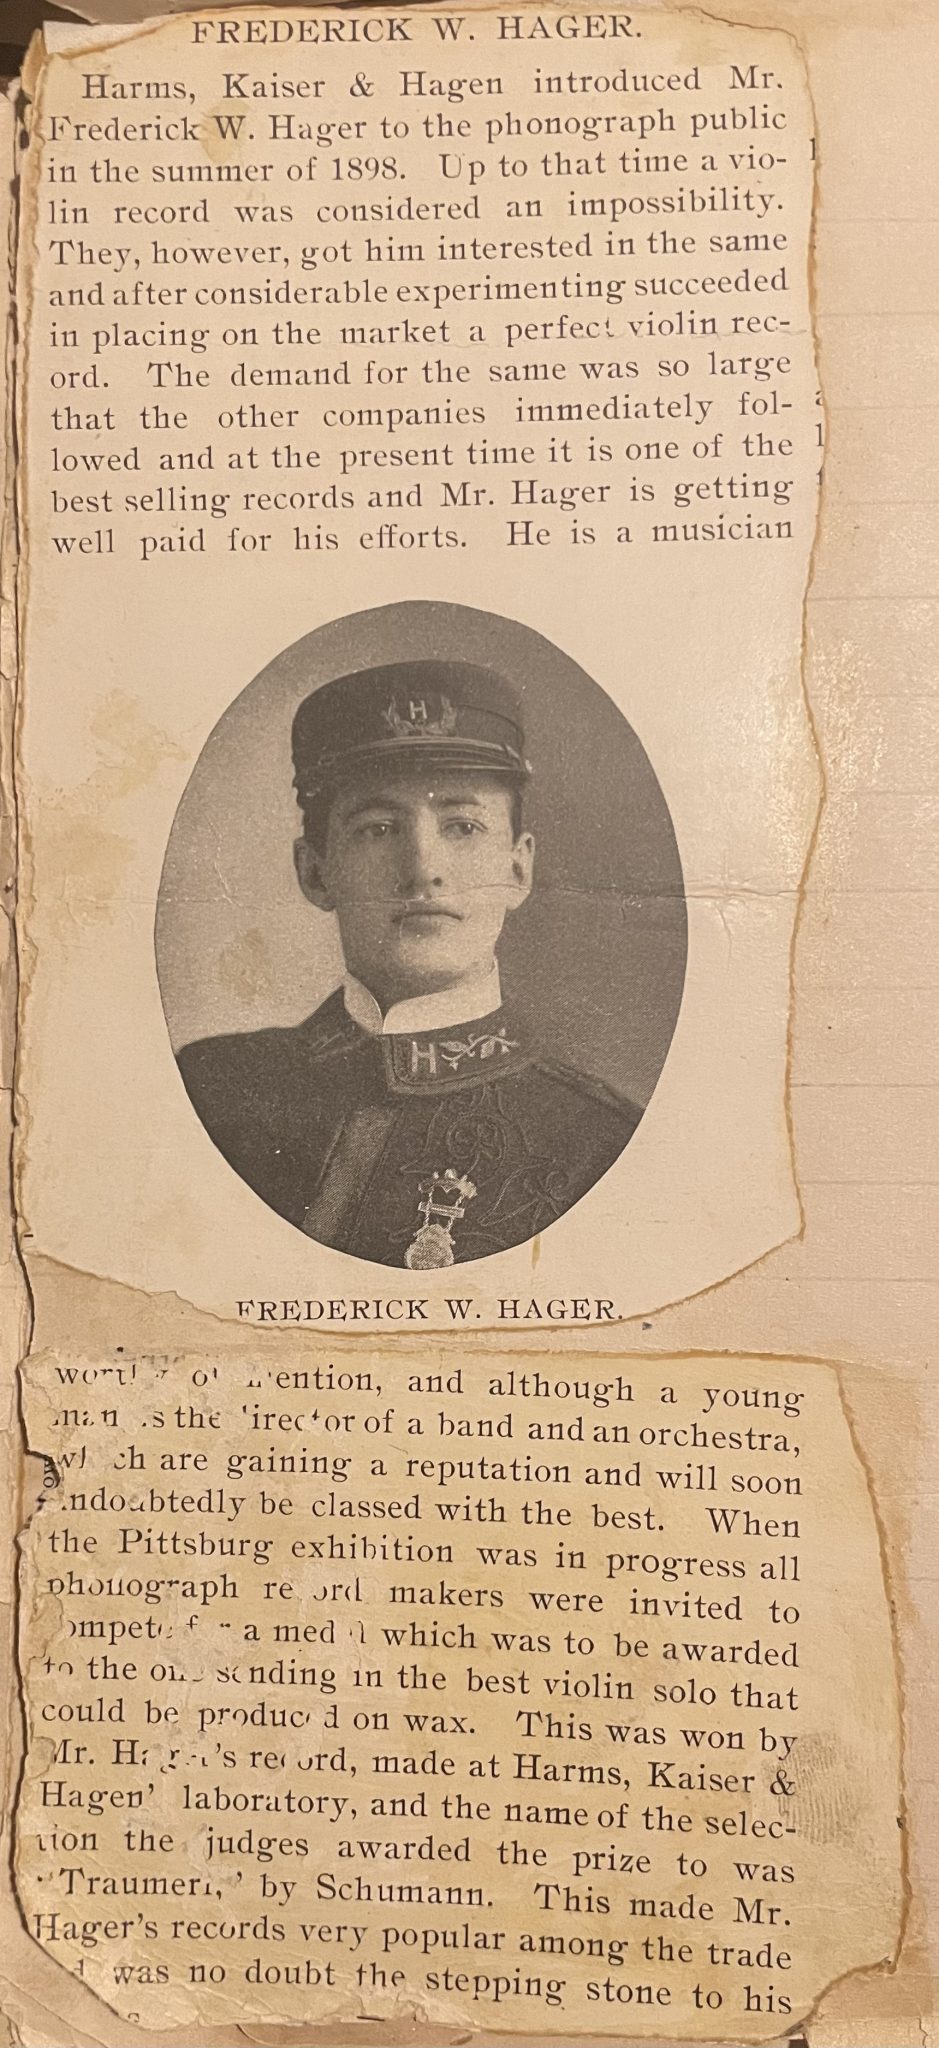 FREDERICK W. HAGER.
Harms, Kaiser & Hagen introduced Mr.
Frederick W. Hager to the phonograph public
in the summer of 1898. Up to that time a vio-
lin record was considered an impossibility.
They, however, got him interested in the same
and after considerable experimenting succeeded
in placing on the market a perfect violin rec-
ord. The demand for the same was so large
that the other companies immediately fol-
lowed and at the present time it is one of the
best selling records and Mr. Hager is getting
well paid for his efforts. He is a musician
H
H
FREDERICK W. HAGER.
worthy of mention, and although a young
man is the director of a band and an orchestra,
which are gaining a reputation and will soon
undoubtedly be classed with the best. When
the Pittsburg exhibition was in progress all
phonograph record makers were invited to
compete for a medal which was to be awarded
to the one sending in the best violin solo that
could be produced on wax. This was won by
Mr. Hager's record, made at Harms, Kaiser &
Hagen' laboratory, and the name of the selec-
tion the judges awarded the prize to was
"Traumeri," by Schumann. This made Mr.
Hager's records very popular among the trade
was no doubt the stepping stone to his